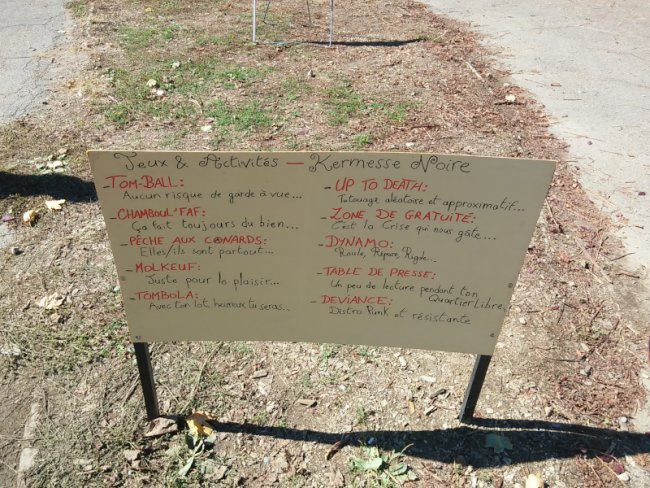 Jeux & Activités — Kermesse Noire
- TOM-BALL:
Aucun risque de garde à vue...
- CHAMBOUL'FAF:
Ça fait toujours du bien...
- PÊCHE AUX CONARDS:
Elles/ils sont partout...
- MOLKEUF:
Juste pour le plaisir...
- TOMBOLA:
Avec ton lot, heureux tu seras...
- UP TO DEATH:
Tatouage aléatoire et approximatif...
- ZONE DE GRATUITÉ:
C'est la Crise qui nous gâte...
- DYNAMO:
Roule, Répare, Rigole...
- TABLE DE PRESSE:
Un peu de lecture pendant ton
Quartier Libre
- DEVIANCE:
Distro Punk et résistante